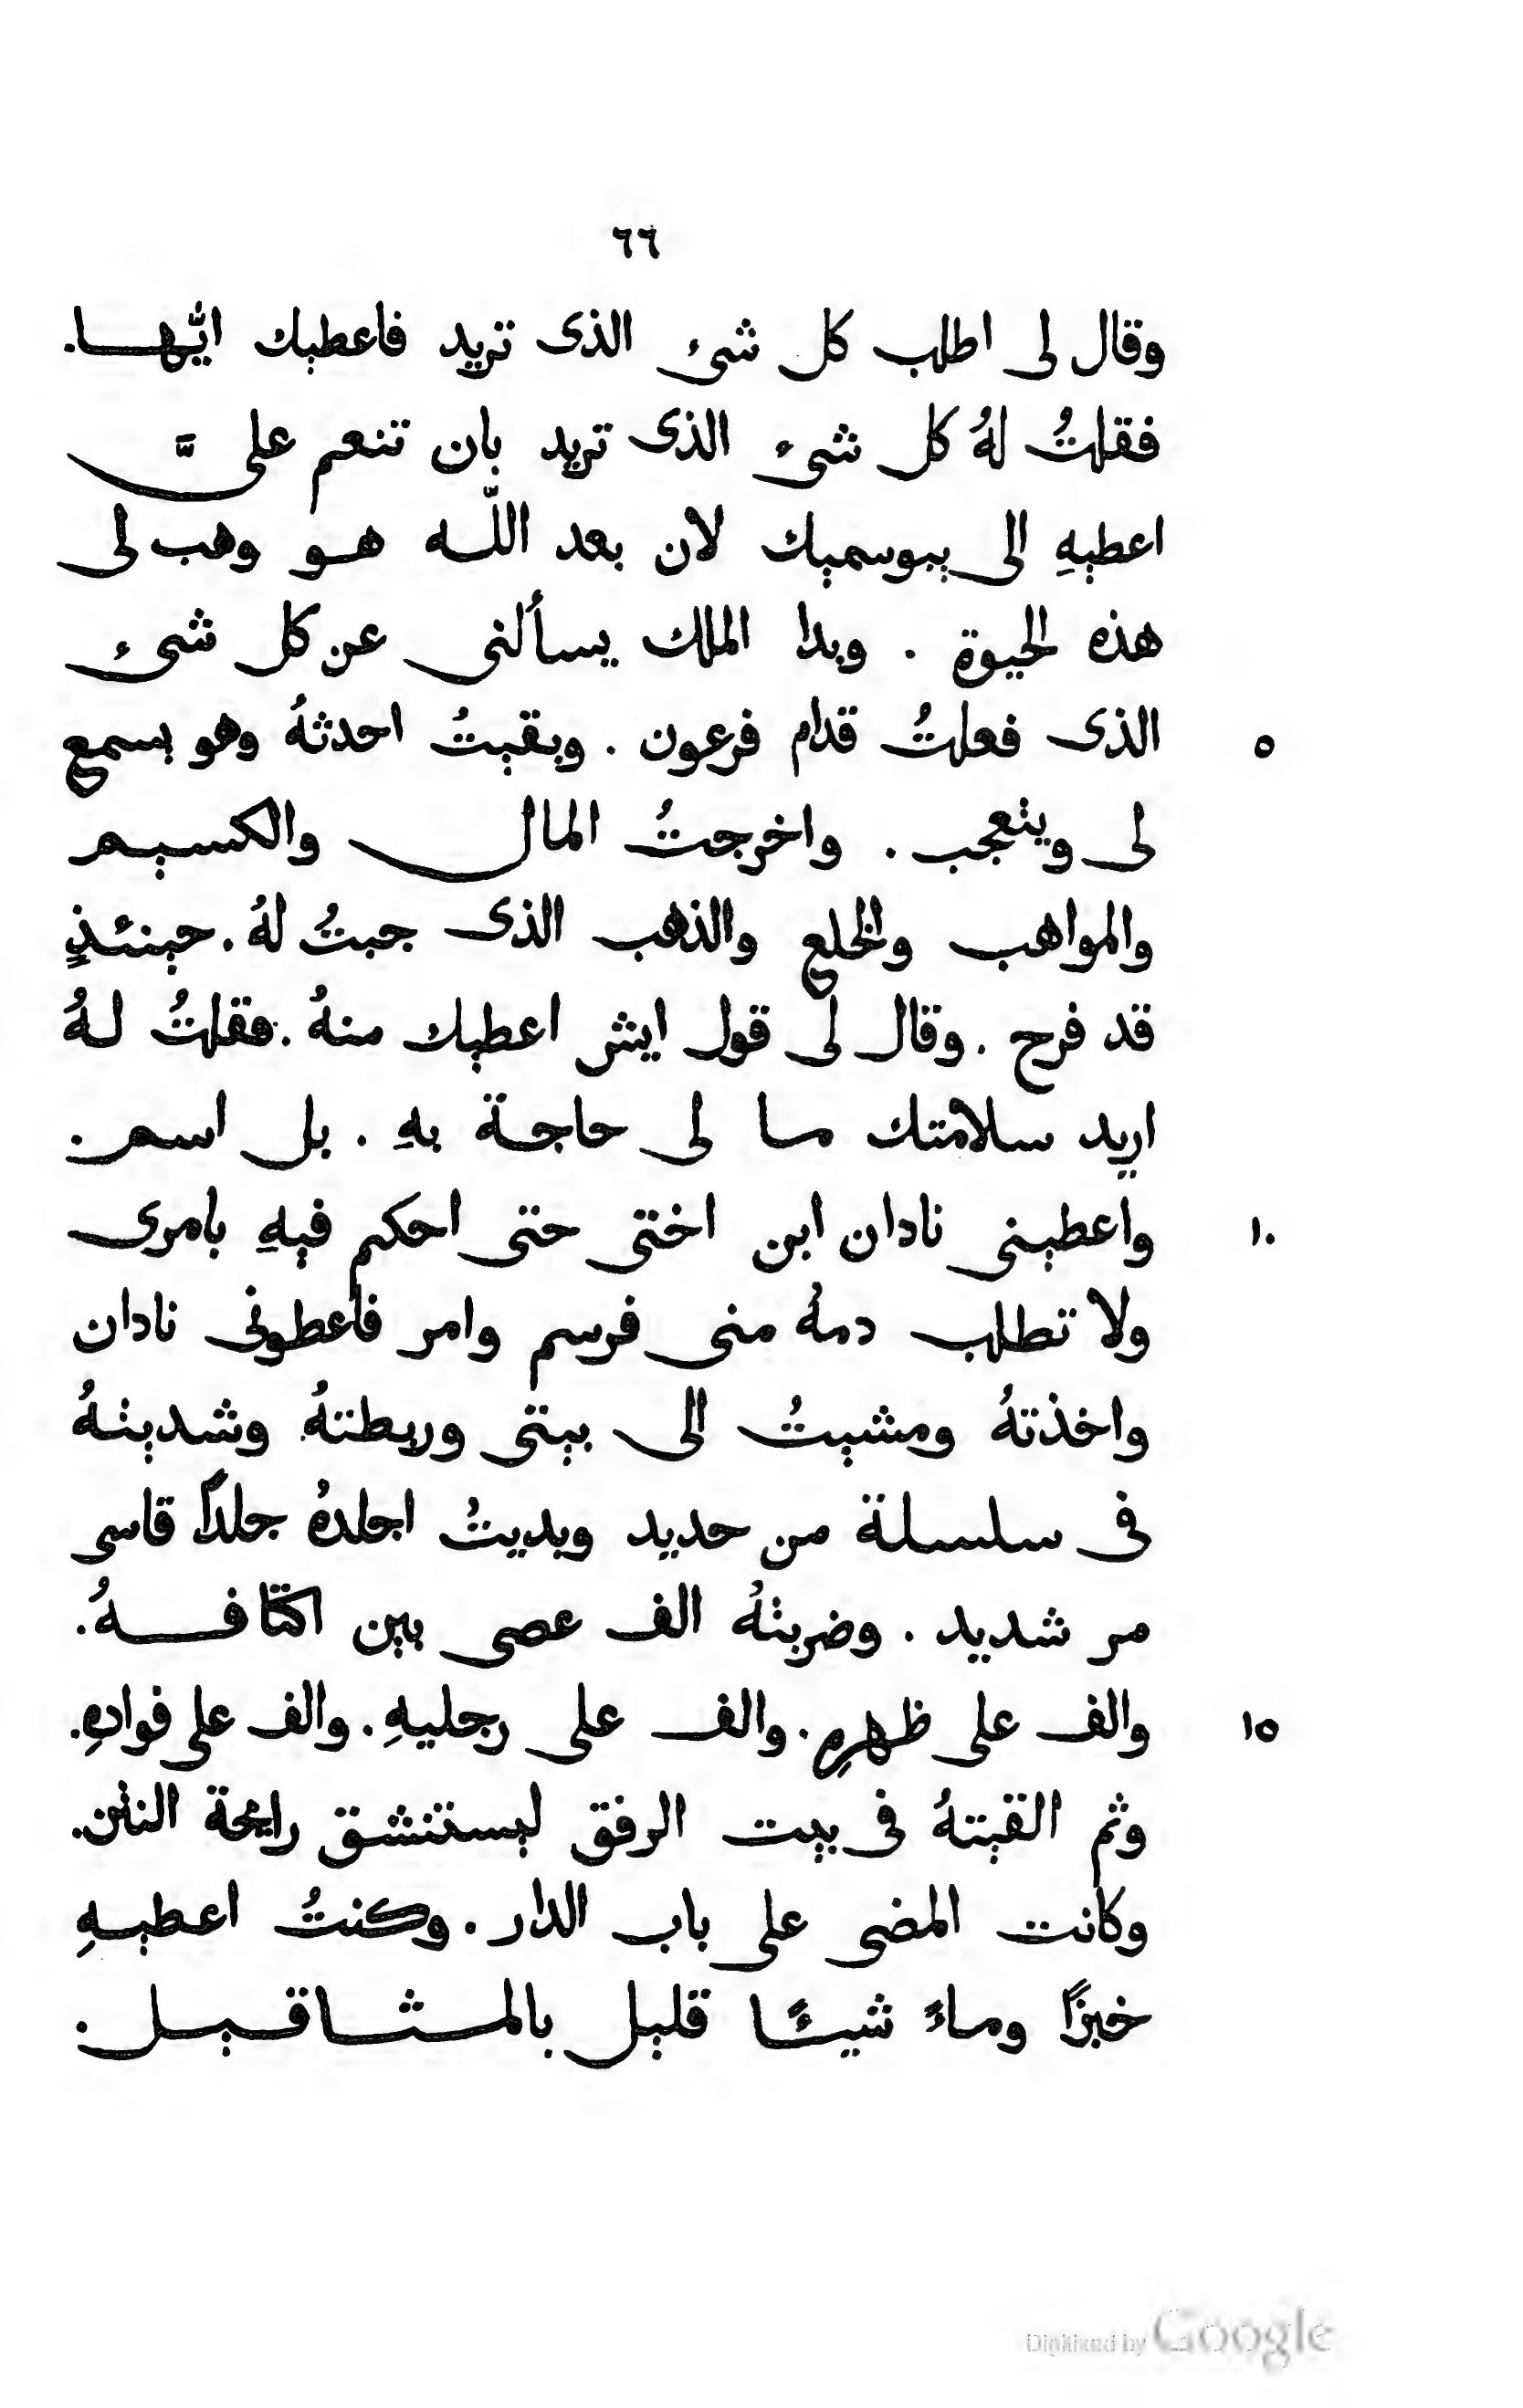 ٦٦
وقال لى اطلب كل شىء الذى تريد فاعطيك ايّها.
فقلتُ لهُ كل شىء الذى تريد بان تنعم علىَّ
اعطيهِ الى يبوسميك لان بعد اللّه هو وهب لى
هذه الحيوة . وبدا الملك يسألنى عن كل شىء
الذى فعلتُ قدام فرعون . وبقيتُ احدثهُ وهو يسمع
٥
لى ويتعجب . واخرجتُ المال والكسيم
والمواهب والخلع والذهب الذى جبتُ لهُ . حينئذٍ
قد فرح . وقال لى قول ايش اعطيك منهُ . فقلتُ لهُ
اريد سلامتك ما لى حاجة بهِ . بل اسمر .
واعطينى نادان ابن اختى حتى احكم فيهِ بامرى
١٠
ولا تطلب دمهُ منى فرسم وامر فاعطونى نادان
واخذتهُ ومشيتُ الى بيتى وربطتهُ وشديتهُ
فى سلسلة من حديد وبديتُ اجلدهُ جلدًا قاسى
مر شديد . وضربتهُ الف عصى بين اكتافهُ .
والف على ظهرهِ . والف على رجليهِ . والف على فوادهِ .
١٥
وثم القيتهُ فى بيت الرفق ليستنشق رايحة النتن .
وكانت المضى على باب الدار . وكنتُ اعطيهِ
خبزًا وماءً شيئًا قليل بالمثاقيل .
Digitized by Google